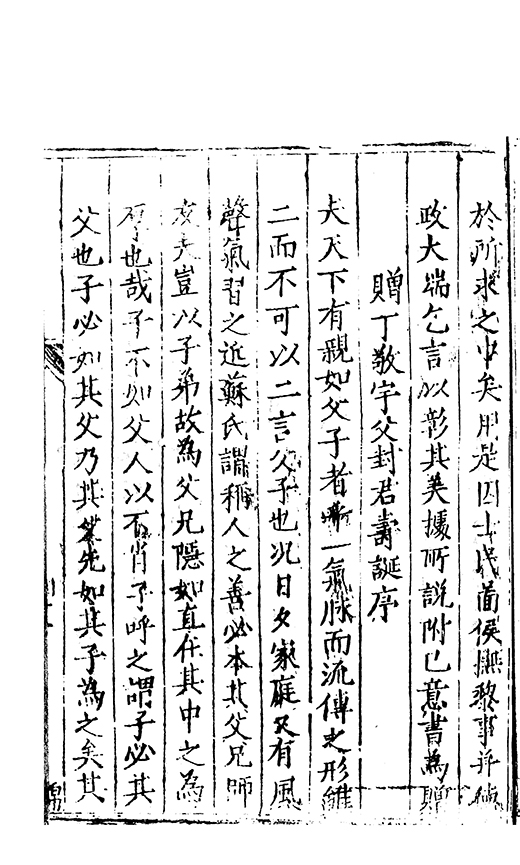 於所求之中矣用是因士民薗侯撫黎事并德
政大端乞言以彰其美據所説附己意書為贈
贈丁敬宇父封君壽誕序
夫天下有親如父子者嘶一氣脉而流傳之形雖
二而不可以二言父子也况日夕家庭又有風
聲氣習之近蘇氏謂稱人之善必本其父兄師
友夫豈以子弟故為父兄隱如直在其中之為
厚也哉子不如父人以不肖子呼之謂子必其
父也子必如其父乃其先如其子為之矣其